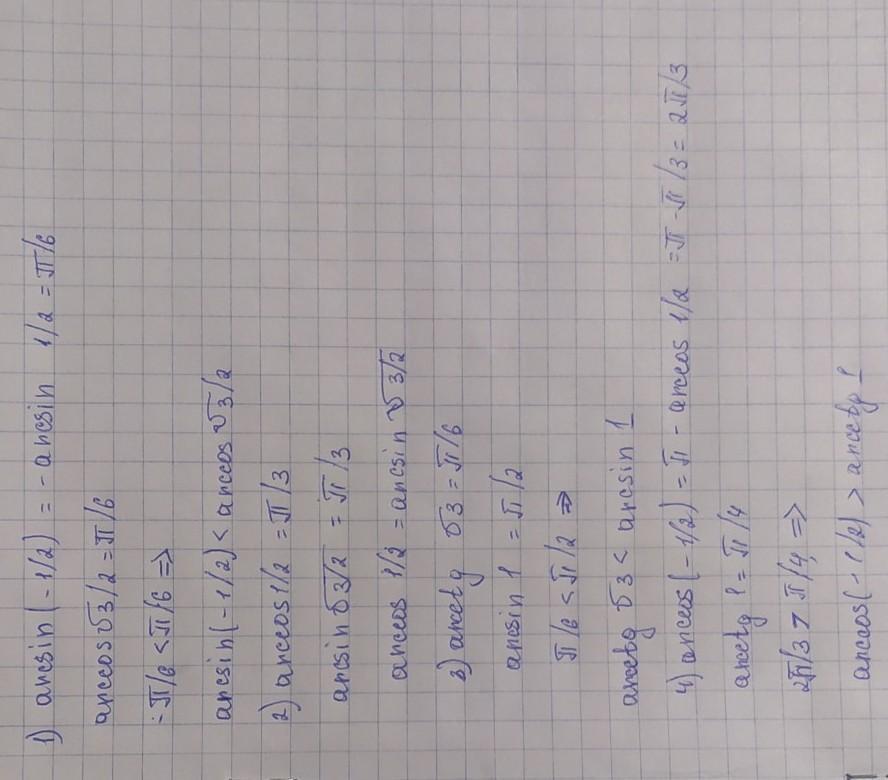 1) arcsin(-1/2) = -arcsin 1/2 = π/6
arccos √3/2 = π/6
-π/6 < π/6 ⇒
arcsin(-1/2) < arccos √3/2
2) arccos 1/2 = π/3
arcsin √3/2 = π/3
arccos 1/2 = arcsin √3/2
3) arcctg √3 = π/6
arcsin 1 = π/2
π/6 < π/2 ⇒
arcctg √3 < arcsin 1
4) arccos(-1/2) = π - arccos 1/2 = π - π/3 = 2π/3
arcctg 1 = π/4
2π/3 > π/4, ⇒
arccos(-1/2) > arcctg 1